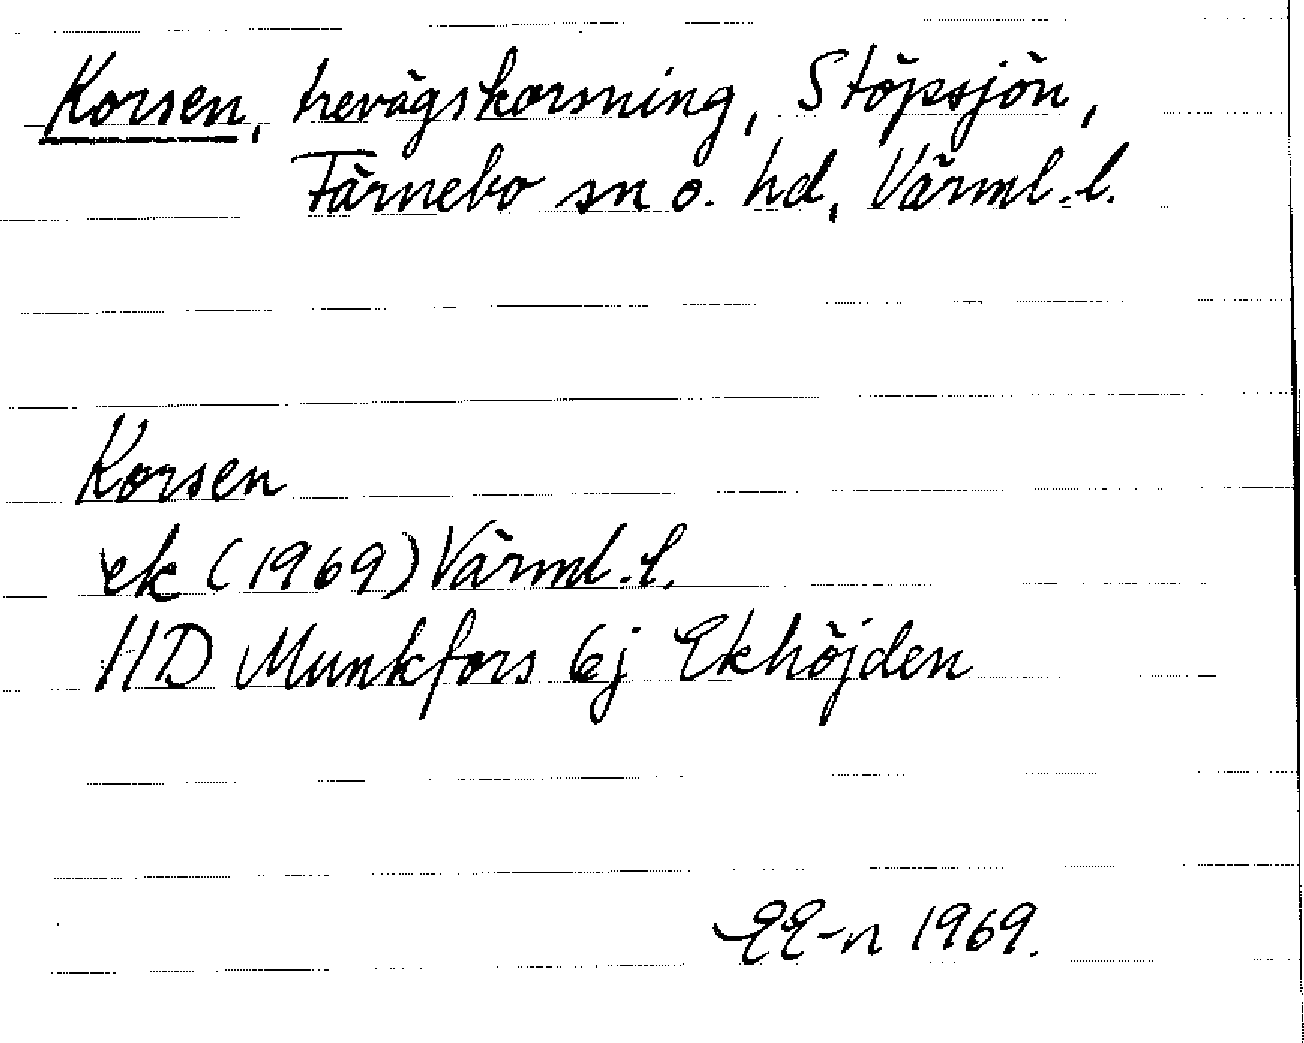 Korsen, trevägskorsning, Stöpsjön,
Färnebo sn o. hd, Värml. l.
Korsen
ek (1969) Värml. l.
11D Munkfors 6j Ekhöjden
EE-n 1969.